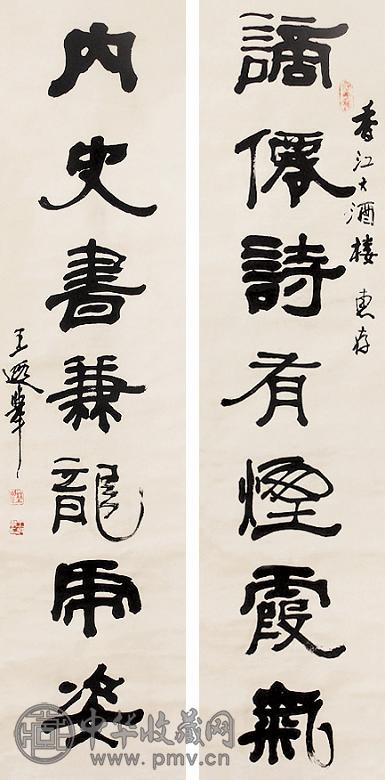 香江大酒楼 惠存
謫僊詩有煙霞氣
内史書兼龍虎姿
王遐舉
中华收藏网
www.pmv.cn